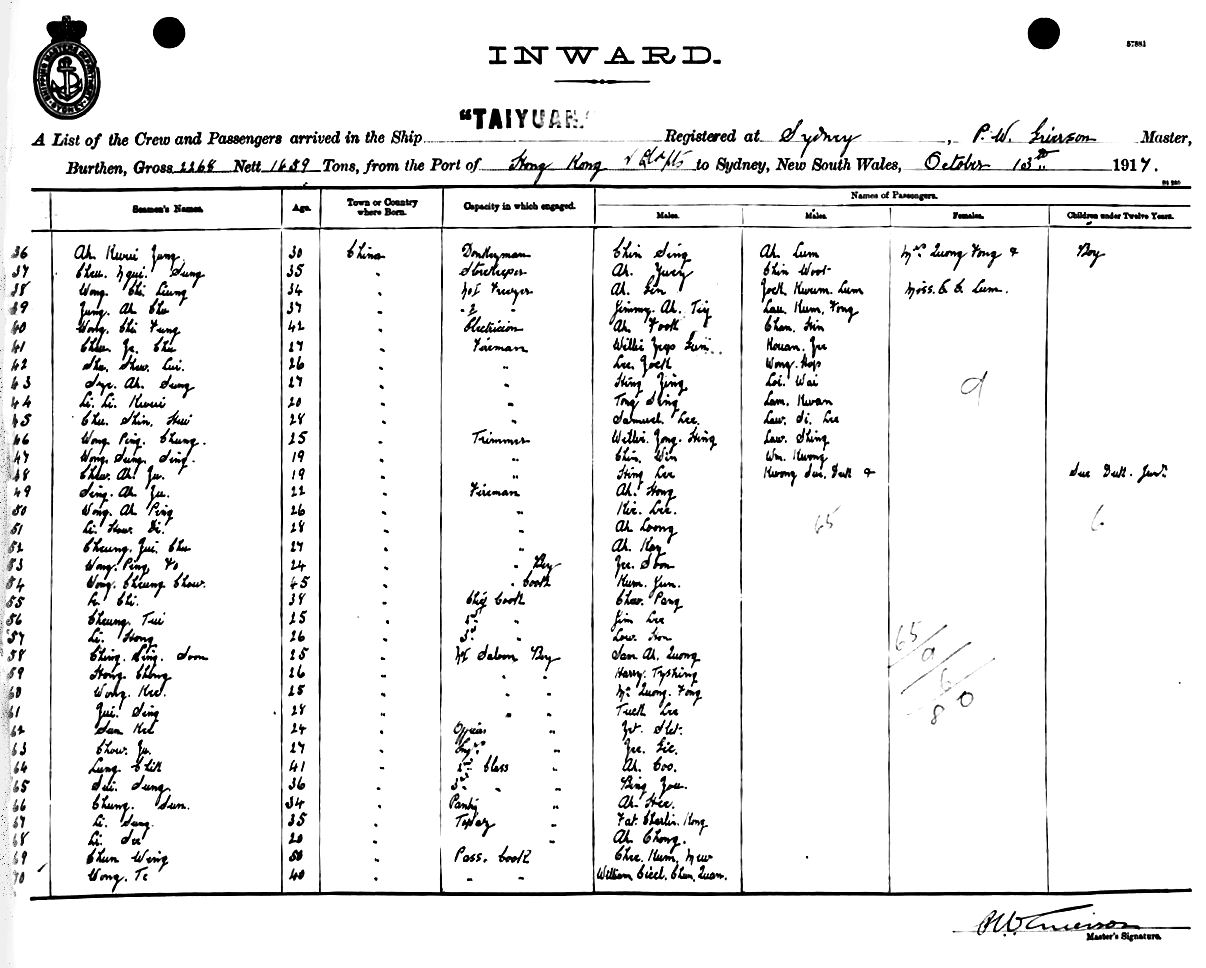 57881
INWARD.
"TAIYUAN."
A List of the Crew and Passengers arrived in the Ship Registered at Sydney, P. W. Grierson Master,
Burthen, Gross 2268 Nett 1459 Tons, from the Port of Hong Kong & to Sydney, New South Wales, October 13th 1917.
Seamen's Names. Age. Town or Country where Born. Capacity in which engaged. Names of Passengers.
Males. Males. Females. Children under Twelve Years.
36 Ah Kwui Jung 30 China Donkeyman Chin Sing Ah Lum Mrs Quong Fong & Boy
37 Cheu Ngui Sung 35 " Storekeeper Ah Yuey Chin Woot
38 Wong Chi Liung 34 " No 1 Ah Gin Jock Kwum Lum Miss. E. E. Lum.
39 Jung Ah Chu 37 " " 2 " Jimmy Ah Tiy Lau Kum Fong
40 Wong Chi Fung 42 " Electrician Ah Fook Chan Hin
41 Cheu Ye Chu 27 " Fireman Willie Kouan Jee
42 Shu Shew Lui 26 " " Lee Jock Wong Hop
43 Ah Sung 27 " " Hing Jing Loi Wai 9
44 Li Li Kwui 20 " " Tong Sing Lam Kwan
45 Chu Shin Hui 28 " " Samuel Lee Law Si Lee
46 Wong Ping Chung 25 " Trimmer Willie Jong Hing Law Shing
47 Wong Sung Sing 19 " " Chin Win Wm Kwong
48 Chew Ah Ju 19 " " Hing Lee Kwong Sue Duk & Sue Duk Junr
49 Sing Ah Ju 22 " Fireman Ah Hong
50 Wong Ah Ping 26 " " Kie Lee
51 Li How Di 28 " " Ah Loong 65 6
52 Cheung Jui Chu 27 " " Ah Kay
53 Wong Ping Yo 24 " " Boy Jee Soon
54 Wong Cheung Chow 45 " " Cook Kum Jun
55 Li Chi 38 " Chief Cook Chaw Pang
56 Cheung Tui 25 " 2nd " Jim Lee
57 Li Hong 26 " 3rd " Low Hon 65/9/6/80
58 Ching Ling Soon 25 " Saloon Boy San Ah Quong
59 Hong Chong 26 " " " Harry Tyshing
60 Wong Kee 25 " " " Mr Quong Fong
61 Jui Sing 28 " " " Tuck Lee
62 Sam Kee 24 " Officers "
63 Chow Ju 27 " Engrs " Jee Gie
64 Lung Chik 41 " 2nd Class " Ah Coo
65 Sui Sung 36 " 3rd " " Bing You
66 Chung Sun 34 " Pantry " Ah Hee
67 Li Sung 35 " Topaz " Fat Charlie Hong
68 Li See 20 " " Ah Chong
69 Chun Wing 50 " Pass. Cook Chee Kum Mew
70 Wong Te 40 " " " William Cecil Chun Quan
P W Grierson
Master's Signature.